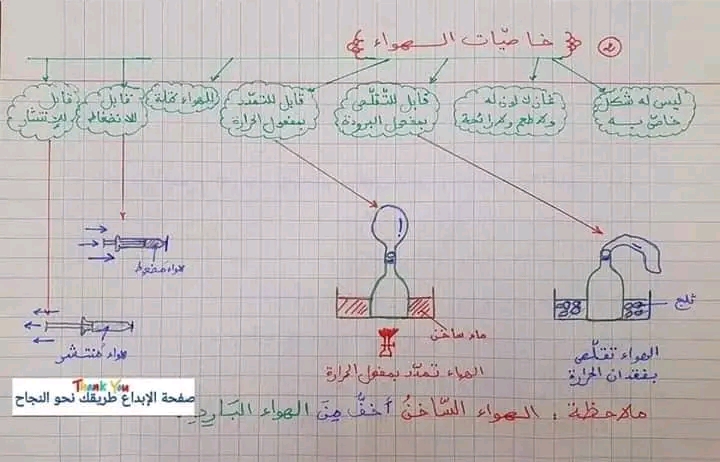 ② خاصيّات الهواء
ليس له شكل
خاصّ به
غاز لا لون له
ولا طعم ولا رائحة
قابل للتّقلّص
بمفعول البرودة
قابل للتمدّد
بمفعول الحرارة
للهواء كتلة
قابل
للانضغاط
قابل
للإنتشار
هواء مضغوط
هواء مُنتشر
ماء ساخن
الهواء تمدّد بمفعول الحرارة
ثلج
الهواء تقلّص
بفقدان الحرارة
Thank You
صفحة الإبداع طريقك نحو النجاح
ملاحظة : الهواء السّاخنُ أخفُّ مِنَ الهواء البَارِدِ.